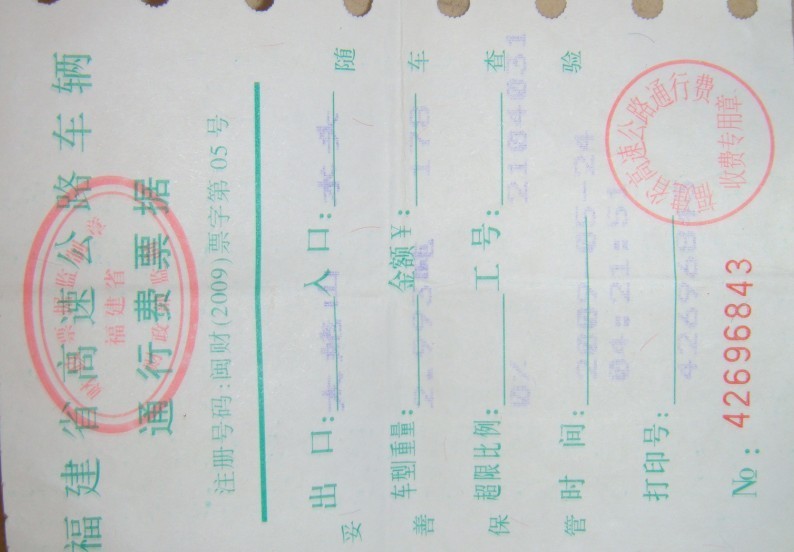 福建省高速公路车辆
通行费票据
注册号码:闽财(2009)票字第 05 号
出口: 入口: 水头
车型|重量: 金额¥: 178
超限比例: 0% 工号: 2104031
时间: 2009-05-24
04:21:51
打印号: 42696843
No: 42696843
妥善保管 随车查验
福建省
福建省高速公路通行费
收费专用章